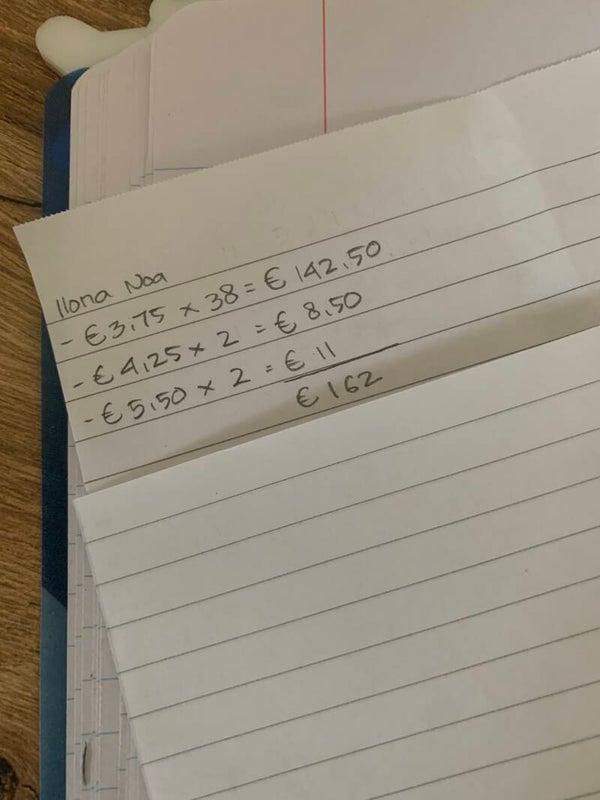 Ilona Noa
- €3,75 x 38 = € 142,50
- € 4,25 x 2 = € 8,50
- € 5,50 x 2 = € 11
€ 162